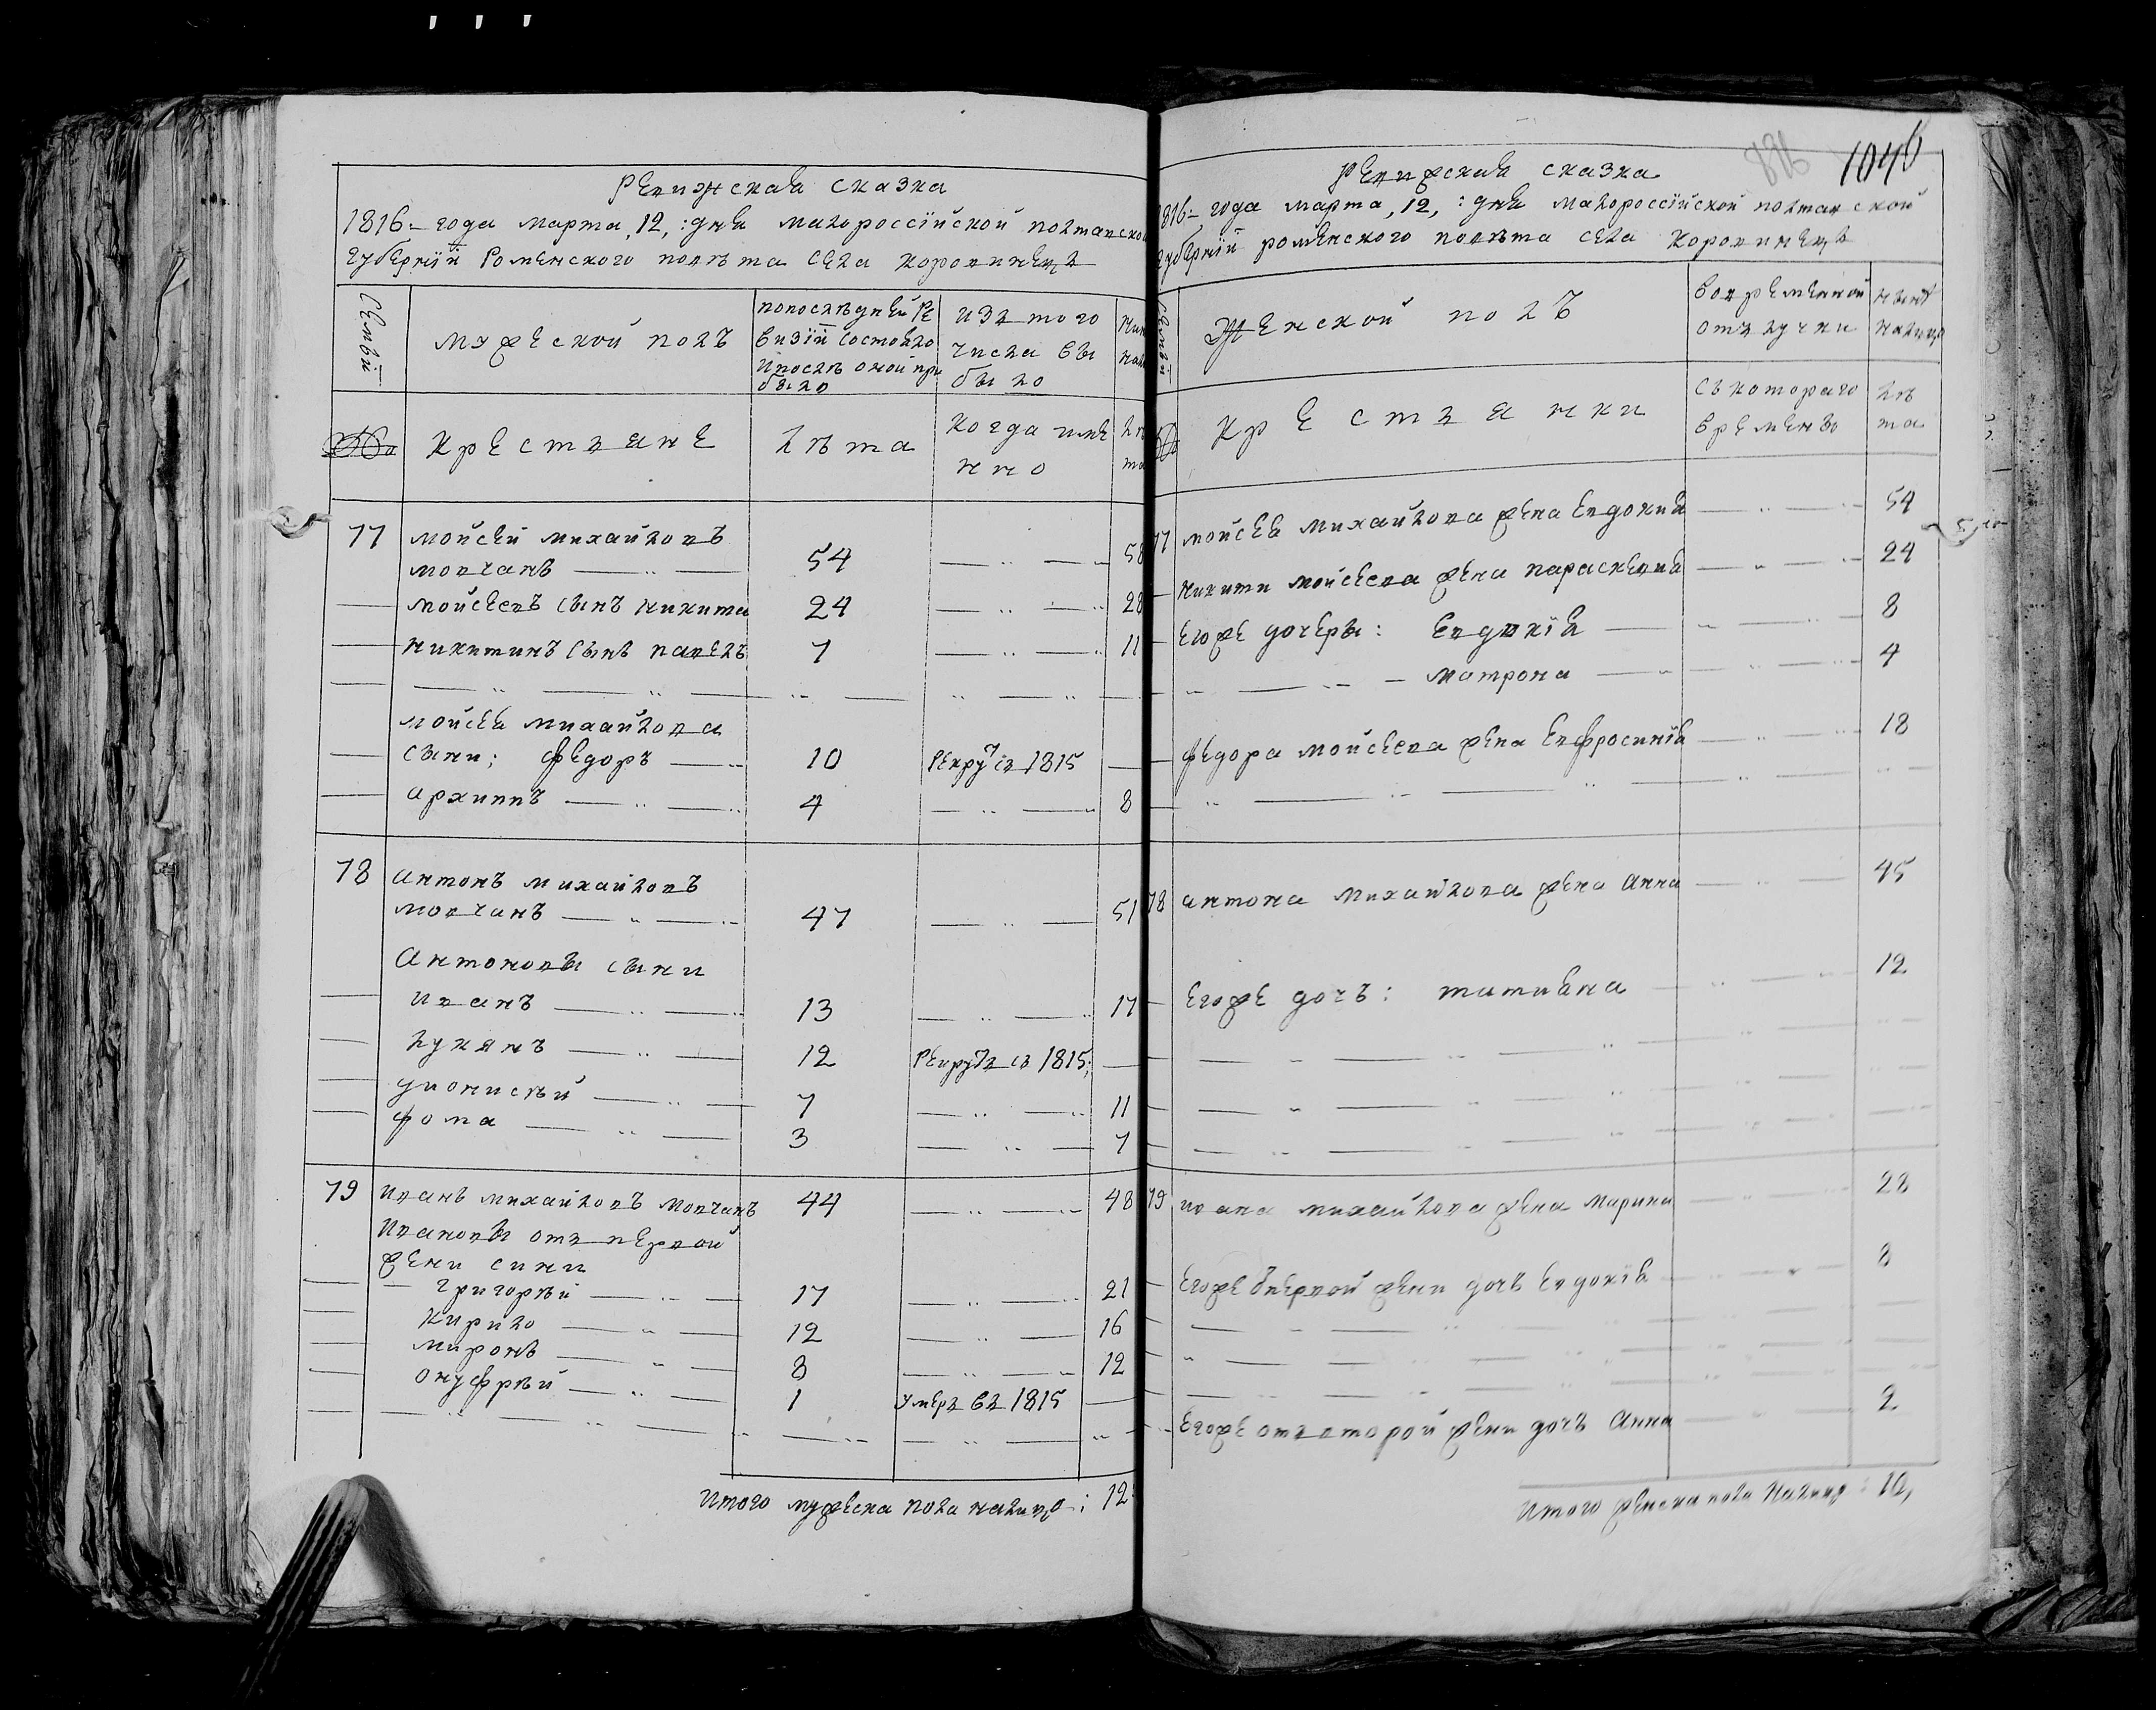 Ревижская сказка
1816 года марта, 12, : дня малороссїйской полтавской
губернїй Роменского повѣта села коровинецъ
Семьи
мужеской полъ
попослѣдней Ре
визїй состояло
и послѣ оной при
было
изъ того
числа вы
было
№
крестъяне
лѣта
когда имѣ
нно
77 мойсей михайловъ
мовчанъ 54 58
мойсеевъ сынъ никита 24 28
никитинъ сынъ павелъ 7 11
мойсея михайлова
сыни; федоръ 10 Рекру съ 1815
архипъ 4 8
78 антонъ михайловъ
мовчанъ 47 51
Антоновы сыни
иванъ 13 17
лукянъ 12 Рекрутъ съ 1815;
дионисѣй 7 11
фома 3 7
79 иванъ михайловъ мовчанъ 44 48
ивановы отъ первой
жени сини
григорѣй 17 21
кирило 12 16
миронъ 8 12
онуфрѣй 1 умеръ въ 1815
итого мужеска пола налицо : 12
1046
Ревижская сказка
1816 года марта, 12, : дня малороссїйской полтавской
губернїй роменского повѣта села коровинецъ
Женской полъ
вовременной
отълучки
нынѣ
налицо
№
крестъянки
съ котораго
времены
лѣ
та
77 мойсея михайлова жена Евдокия 54
никити мойсеева жена параскевия 24
Егоже дочеры: Евдокїя 8
матрона 4
федора мойсеева жена Евфросинїя 18
78 антона михайлова жена анна 45
Егоже дочъ: татияна 12
79 ивана михайлова жена марина 28
Егоже первой жени дочъ Евдокїя 8
Егоже отъ второй жени дочъ анна 2
итого женска пола налицо : 10,